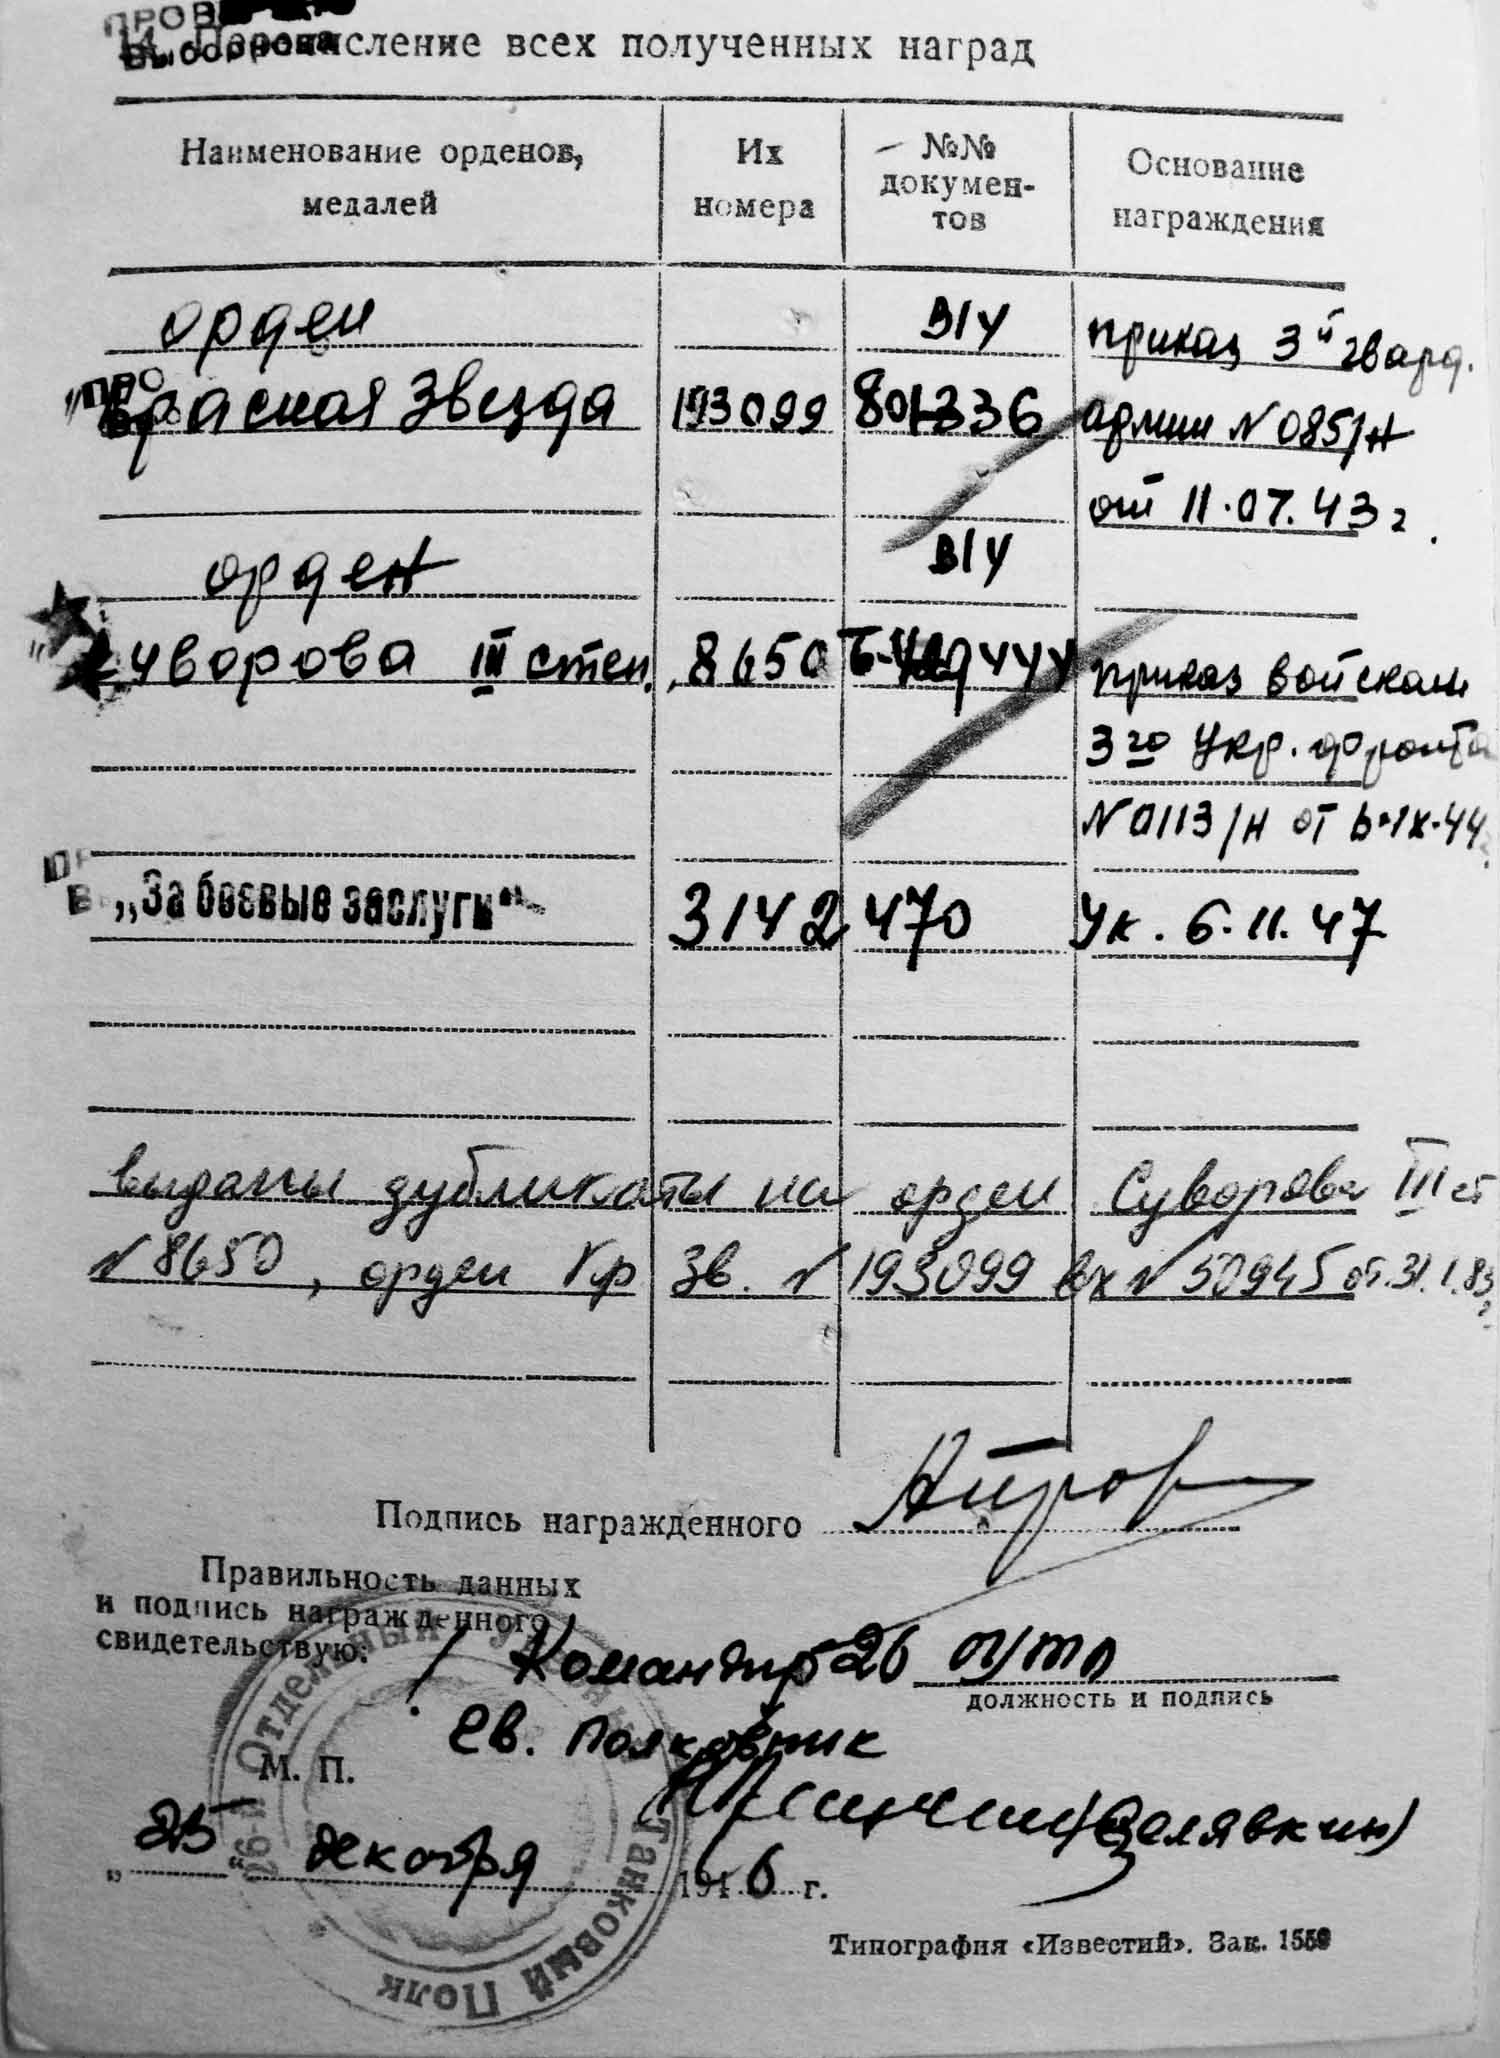 14. Перечисление всех полученных наград
Наименование орденов, медалей
Их номера
№№ докумен-тов
Основание награждения
орден
в/у
приказ 3й гвард.
Красная Звезда 193099 801336 армии N 085/н
от 11.07.43 г.
орден
в/у
Суворова III степ. 8650 приказ войскам
3го Укр. фронта
N 0113/н от 6.IX.44
„За боевые заслуги“ 3142 470 Ук. 6.11.47
выданы дубликаты на орден Суворова III ст
N 8650, орден Кр Зв. N 193099 вх N 50945 от 31.1.83 г.
Подпись награжденного
Правильность данных
и подпись награжденного
свидетельствую:
Командир 26 оутп
должность и подпись
гв. полковник
М. П.
(Зелявкин)
„25“ декабря 1946 г.
26-й Отдельный Учебный Танковый Полк
Типография «Известий». Зак. 1559